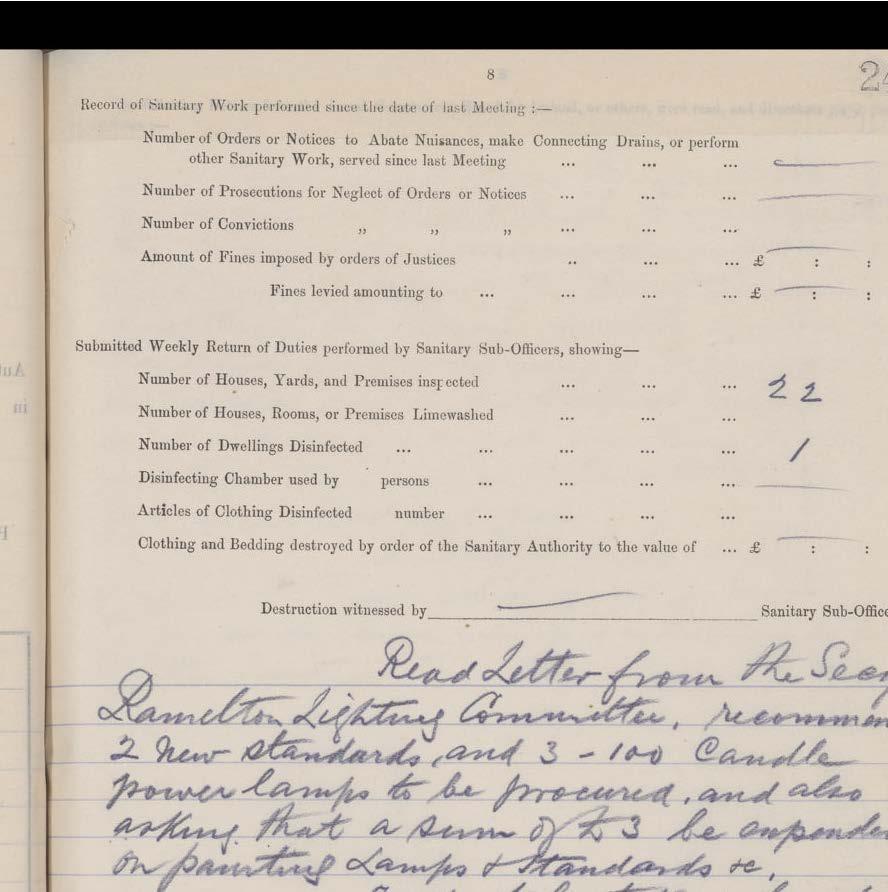 8
24
Record of Sanitary Work performed since the date of last Meeting :—
Number of Orders or Notices to Abate Nuisances, make Connecting Drains, or perform
other Sanitary Work, served since last Meeting ... ... ...
Number of Prosecutions for Neglect of Orders or Notices ... ... ...
Number of Convictions „ „ „ ... ... ...
Amount of Fines imposed by orders of Justices .. ... ... £ : :
Fines levied amounting to ... ... ... ... £ : :
Submitted Weekly Return of Duties performed by Sanitary Sub-Officers, showing—
Number of Houses, Yards, and Premises inspected ... ... ... 22
Number of Houses, Rooms, or Premises Limewashed ... ... ...
Number of Dwellings Disinfected ... ... ... ... ... 1
Disinfecting Chamber used by persons ... ... ... ...
Articles of Clothing Disinfected number ... ... ... ...
Clothing and Bedding destroyed by order of the Sanitary Authority to the value of ... £ : :
Destruction witnessed by Sanitary Sub-Office
Read Letter from the Secy
Ramelton Lighting Committee, recommen
2 new standards, and 3 - 100 Candle
power lamps to be procured, and also
asking that a sum of £3 be expende
on painting Lamps & Standards &c,